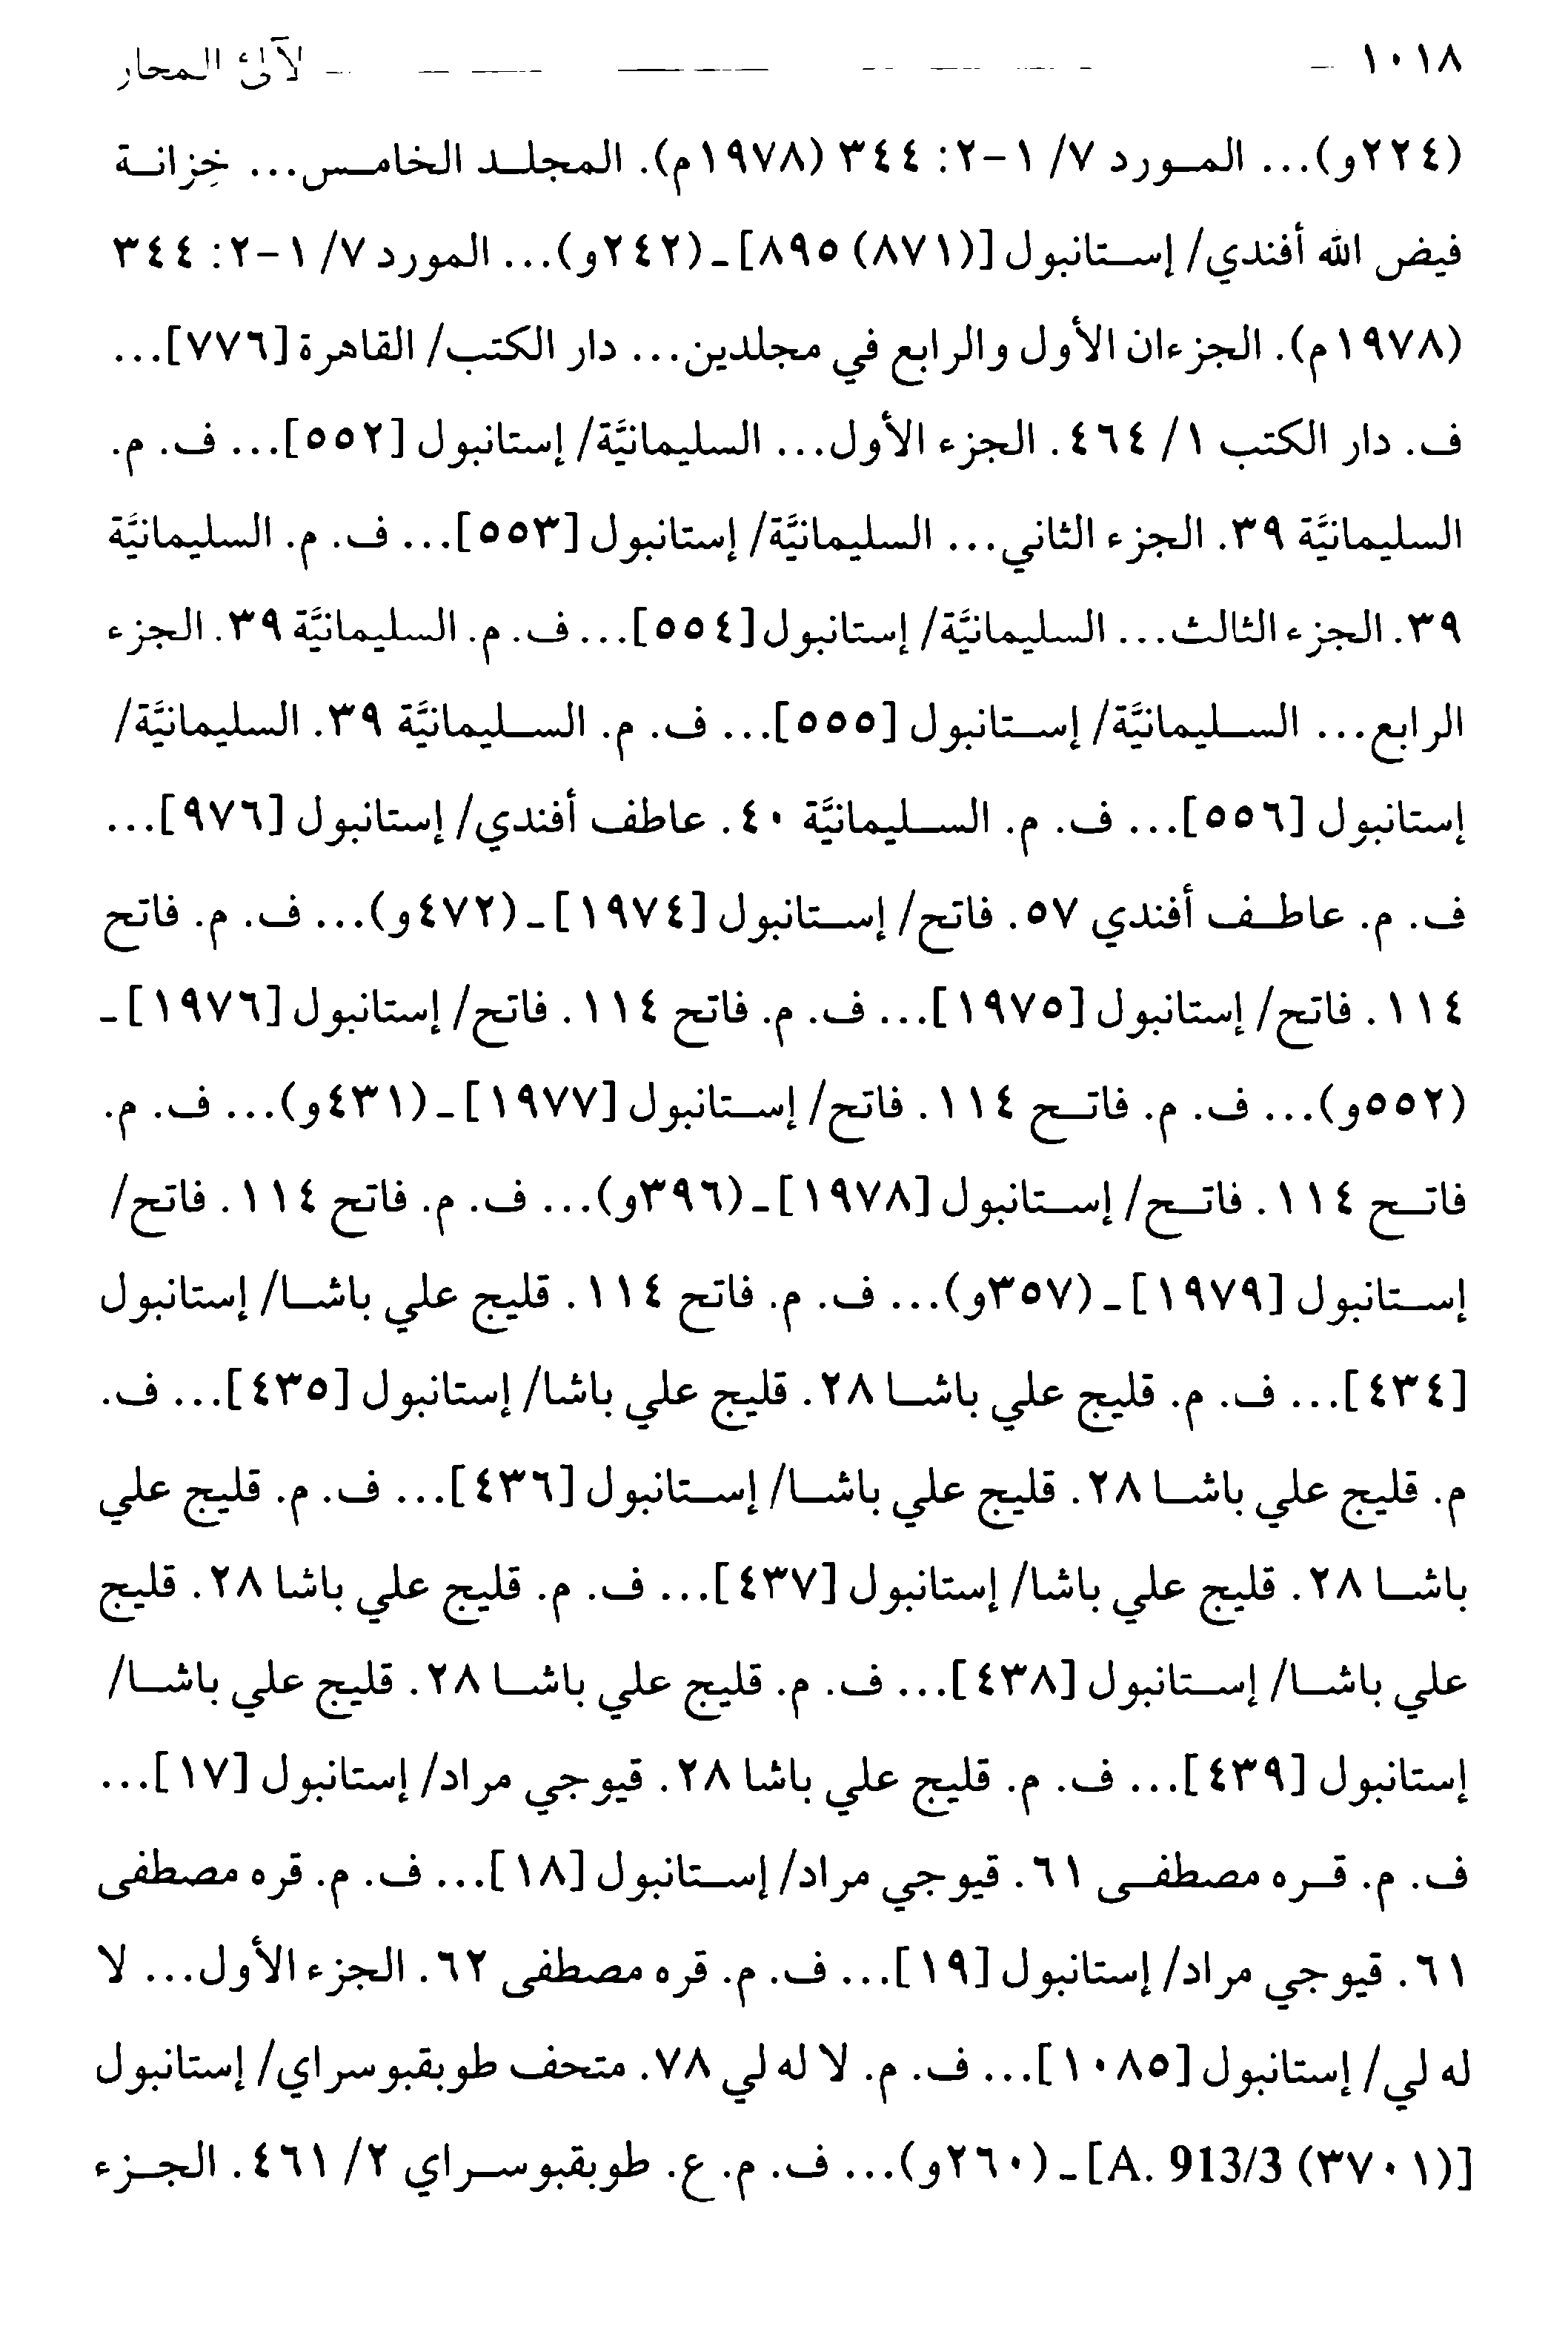 ١٠١٨ لآلئ المحار
(٢٢٤و)... المورد ٧/ ١-٢: ٣٤٤ (١٩٧٨م). المجلد الخامس... خِزانة
فيض الله أفندي/ إستانبول [(٨٧١) ٨٩٥] ـ (٢٤٢و)... المورد ٧/ ١-٢: ٣٤٤
(١٩٧٨م). الجزءان الأول والرابع في مجلدين... دار الكتب/ القاهرة [٧٧٦]...
ف. دار الكتب ١/ ٤٦٤. الجزء الأول... السليمانيَّة/ إستانبول [٥٥٢]... ف. م.
السليمانيَّة ٣٩. الجزء الثاني... السليمانيَّة/ إستانبول [٥٥٣]... ف. م. السليمانيَّة
٣٩. الجزء الثالث... السليمانيَّة/ إستانبول [٥٥٤]... ف. م. السليمانيَّة ٣٩. الجزء
الرابع... السليمانيَّة/ إستانبول [٥٥٥]... ف. م. السليمانيَّة ٣٩. السليمانيَّة/
إستانبول [٥٥٦]... ف. م. السليمانيَّة ٤٠. عاطف أفندي/ إستانبول [٩٧٦]...
ف. م. عاطف أفندي ٥٧. فاتح/ إستانبول [١٩٧٤] ـ (٤٧٢و)... ف. م. فاتح
١١٤. فاتح/ إستانبول [١٩٧٥]... ف. م. فاتح ١١٤. فاتح/ إستانبول [١٩٧٦] ـ
(٥٥٢و)... ف. م. فاتح ١١٤. فاتح/ إستانبول [١٩٧٧] ـ (٤٣١و)... ف. م.
فاتح ١١٤. فاتح/ إستانبول [١٩٧٨] ـ (٣٩٦و)... ف. م. فاتح ١١٤. فاتح/
إستانبول [١٩٧٩] ـ (٣٥٧و)... ف. م. فاتح ١١٤. قليج علي باشا/ إستانبول
[٤٣٤]... ف. م. قليج علي باشا ٢٨. قليج علي باشا/ إستانبول [٤٣٥]... ف.
م. قليج علي باشا ٢٨. قليج علي باشا/ إستانبول [٤٣٦]... ف. م. قليج علي
باشا ٢٨. قليج علي باشا/ إستانبول [٤٣٧]... ف. م. قليج علي باشا ٢٨. قليج
علي باشا/ إستانبول [٤٣٨]... ف. م. قليج علي باشا ٢٨. قليج علي باشا/
إستانبول [٤٣٩]... ف. م. قليج علي باشا ٢٨. قيوجي مراد/ إستانبول [١٧]...
ف. م. قره مصطفى ٦١. قيوجي مراد/ إستانبول [١٨]... ف. م. قره مصطفى
٦١. قيوجي مراد/ إستانبول [١٩]... ف. م. قره مصطفى ٦٢. الجزء الأول... لا
له لي/ إستانبول [١٠٨٥]... ف. م. لا له لي ٧٨. متحف طوبقبوسراي/ إستانبول
[(٣٧٠١) A. 913/3] ـ (٢٦٠و)... ف. م. ع. طوبقبوسراي ٢/ ٤٦١. الجزء